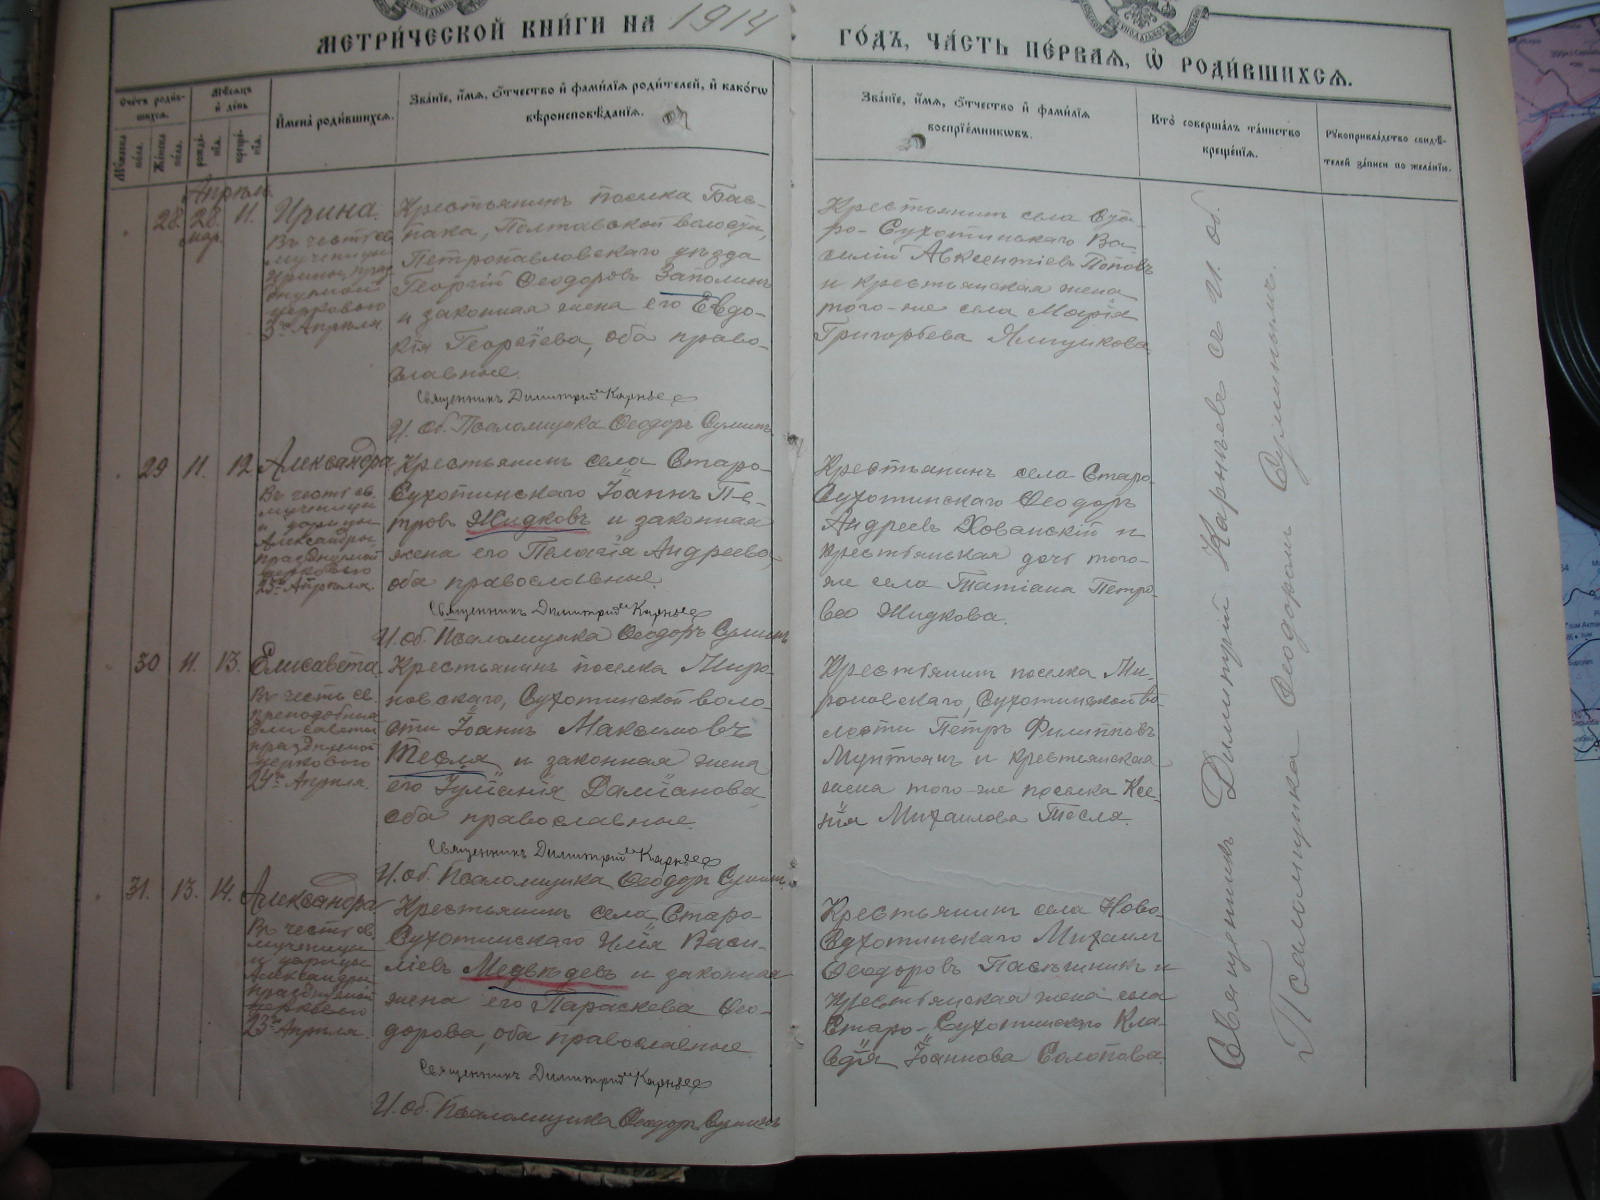 МЕТРИ́ЧЕСКОЙ КНИ́ГИ НА 1914 ГО́ДЪ, ЧА́СТЬ ПЕ́РВАЯ, Ѡ РОДИ́ВШИХСЯ.
Счетъ родившихся.
Мужеска пола.
Женска пола.
Мѣсяцъ и день
рожденія.
крещенія.
Имена родившихся.
Званіе, имя, отчество и фамилія родителей, и какого
вѣроисповѣданія.
Званіе, имя, отчество и фамилія
воспріемниковъ.
Кто совершалъ таинство
крещенія.
Рукоприкладство свидѣ-
телей записи по желанію.
Апрѣль.
28. 28. мар. 11.
Ирина.
Въ честь св.
мученицы
Ирины, праз
днуемой
церковью
Апрѣля
Крестьянинъ поселка Бас-
Полтавской волости,
Петропавловскаго уѣзда
Георгій Ѳеодоровъ Заполинъ
и законная жена его Евдо-
кія Георгіева, оба право-
славные.
Священникъ Димитрій Карньев
И. об. Псаломщика Ѳеодоръ Сулинъ
Крестьянинъ села Ста-
ро-Сухотинскаго Ва-
силій Авксентіевъ Поповъ
и крестьянская жена
того-же села Марія
Григорьева
29 11. 12
Александра
Въ честь св.
мученицы
и царицы
Александры
празднуемой
церковью
23го Апрѣля.
Крестьянинъ села Старо-
Сухотинскаго Іоаннъ Пе-
тровъ Жидковъ и законная
жена его Пелагія Андреева,
оба православные.
Священникъ Димитрій Карньев
И. об. Псаломщика Ѳеодоръ Сулинъ
Крестьянинъ села Старо-
Сухотинскаго Ѳеодоръ
Андреевъ Хованскій и
крестьянская дочь того-
же села Татіана Петро-
ва Жидкова.
30 11. 13.
Елисавета.
Въ честь св.
преподобныя
Елисаветы
празднуемой
церковью
24го Апрѣля.
Крестьянинъ поселка Миро-
новскаго, Сухотинской воло-
сти Іоаннъ Максимовъ
Тесля и законная жена
его Іуліанія Даміанова,
оба православные.
Священникъ Димитрій Карньев
И. об. Псаломщика Ѳеодоръ Сулинъ
Крестьянинъ поселка Ми-
роновскаго, Сухотинской во-
лости Петръ Филипповъ
Мунтьянъ и крестьянская
жена того-же поселка Ксе-
нія Михаилова Тесля.
31. 13. 14.
Александра
Въ честь св.
мученицы
и царицы
Александры
празднуемой
церковью
23го Апрѣля.
Крестьянинъ села Старо-
Сухотинскаго Илія Васи-
ліевъ Медвѣдевъ и законная
жена его Параскева Ѳео-
дорова, оба православные.
Священникъ Димитрій Карньев
И. об. Псаломщика Ѳеодоръ Сулинъ
Крестьянинъ села Ново-
Сухотинскаго Михаилъ
Ѳеодоровъ Пасѣчникъ и
крестьянская жена села
Старо-Сухотинскаго Кла-
вдія Іоаннова Солопова.
Священникъ Димитрій Карньевъ съ И. об.
Псаломщика Ѳеодоромъ Сулинымъ.